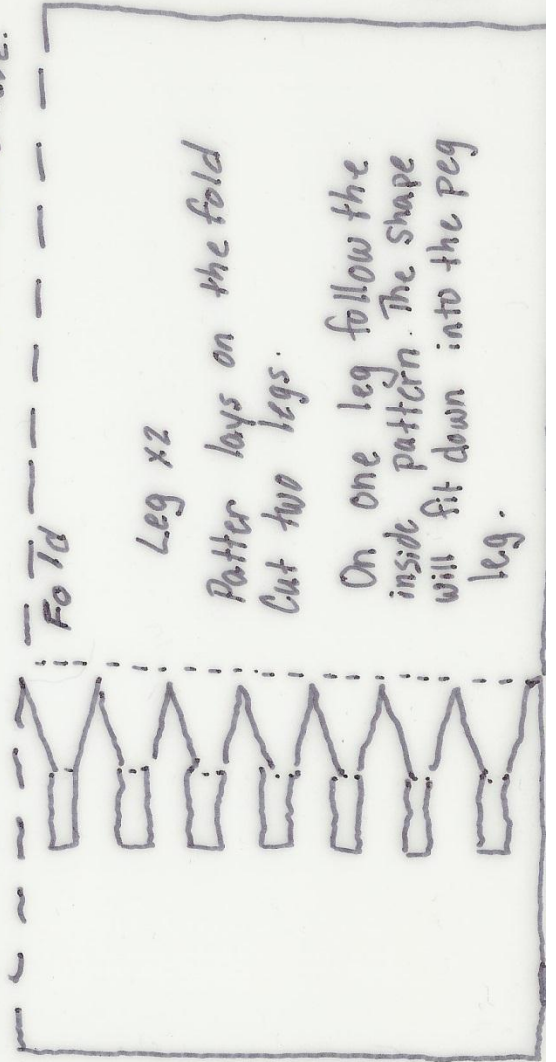 Fold
Leg x2
Patter lays on the fold
Cut two legs.
On one leg follow the
inside pattern. The shape
will fit down into the peg
leg.